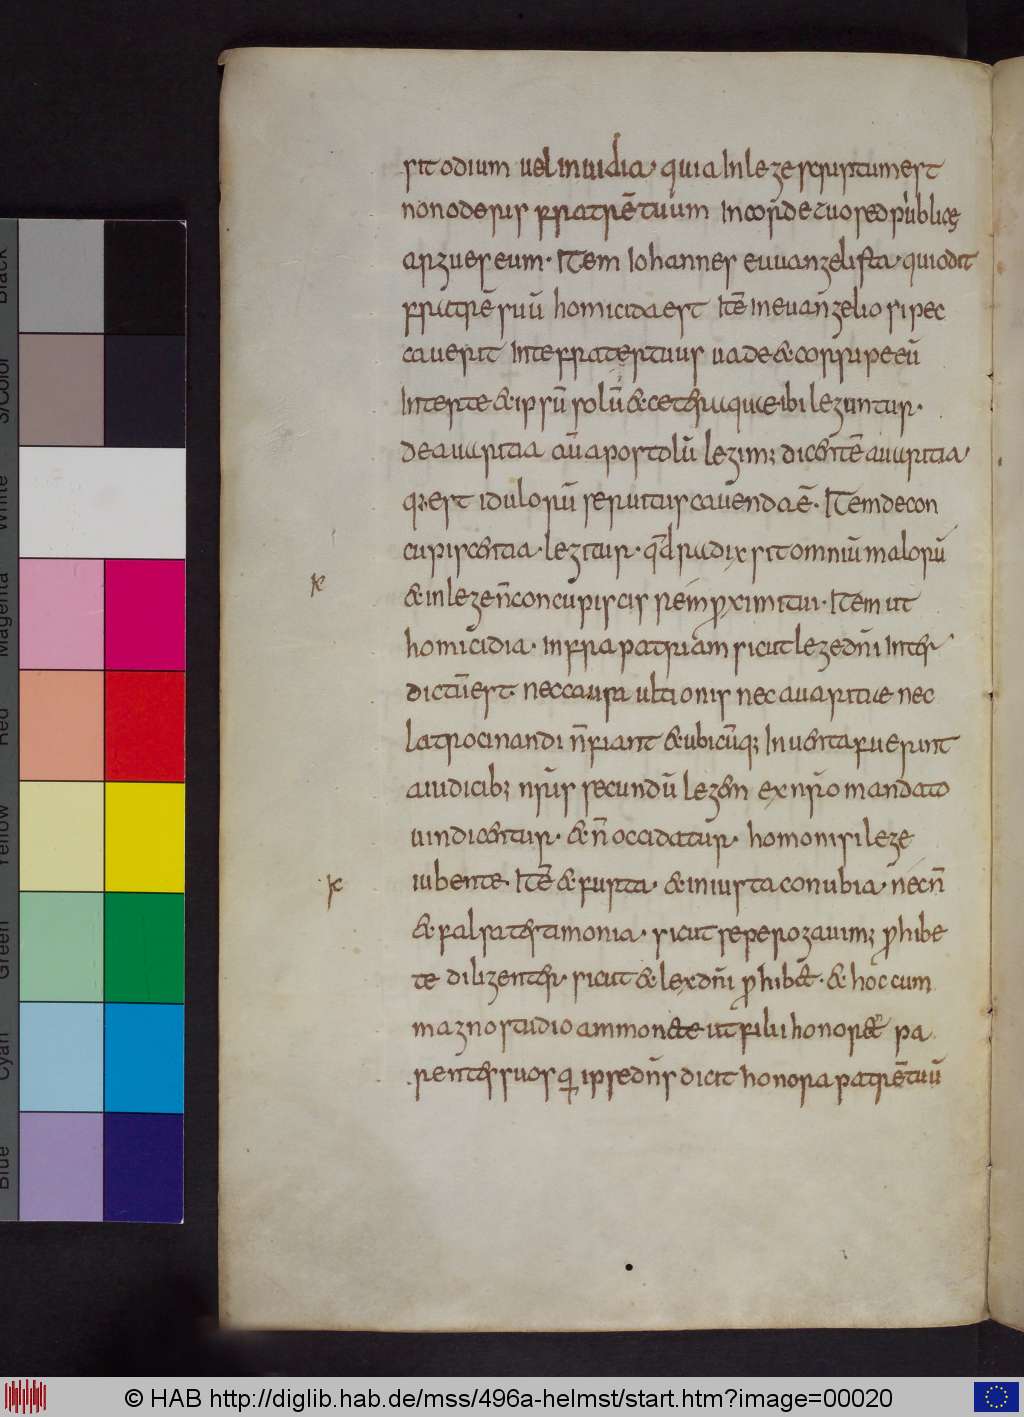 sit odium uel inuidia· quia In lege scriptum est
non oderis fratrē tuum In corde tuo sed publice
argues eum· Item Iohannes euuangelista· qui odit
fratrē suū homicida est Itē In euangelio si pec
cauerit In te frater tuus uade & corripe eū
Inter te & ipsū solū & cetera quae ibi leguntur·
de auaritia aū apostolū legim; dicentē auaritia
q; est idulorū seruitus cauenda ē· Item de con
cupiscentia· legitur· qd̄ radix sit omniū malorū
& in lege n̄ concupiscis rem p̄ximi tui· Item ut
homicidia· Infra patriam sicut lege dn̄i Inter
dictū est· nec causa ultionis nec auaritiae nec
latrocinandi n̄ fiant & ubicūq; Inuenta fuerint
a iudicib; nr̄is secundū legem ex nr̄o mandato
uindicentur· & n̄ occidatur· homo nisi lege
iubente· Itē & furta· & iniusta conubia· nec n̄
& falsa testimonia· sicut sepe rogauim; p̄hibe
te diligenter· sicut & lex dn̄i p̄hibet· & hoc cum
magno studio ammonete ut filii honoret pa
rentes suos q̄ ipse dn̄s dicit honora patrē tuū
© HAB http://diglib.hab.de/mss/496a-helmst/start.htm?image=00020
Black
3/Color
White
Magenta
Red
Yellow
Green
Cyan
Blue